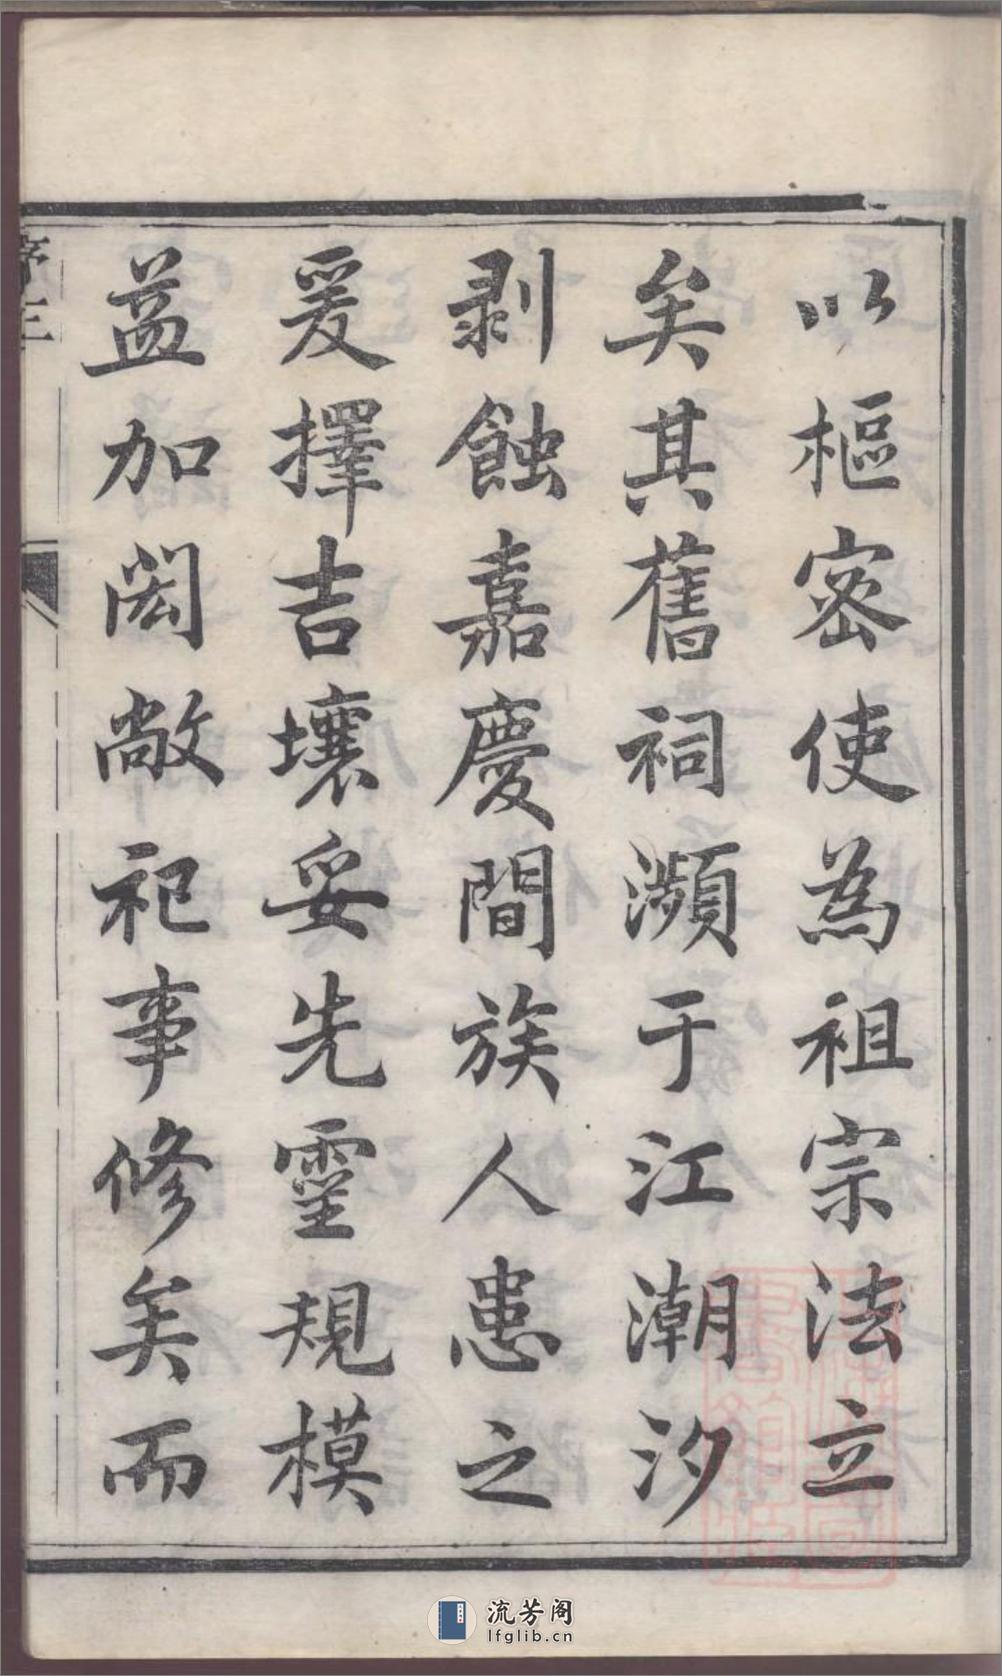 以樞密使為祖宗法立
矣其舊祠瀕于江潮汐
剥蝕嘉慶間族人患之
爰擇吉壤妥先靈規模
益加閎敞祀事修矣而
流芳阁
lfglib.cn